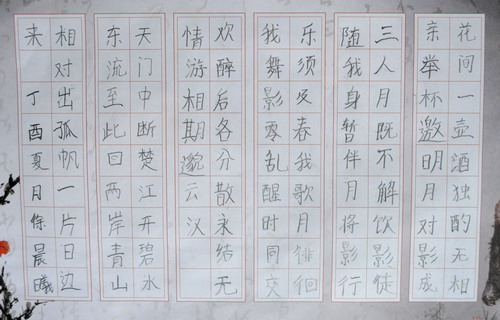 花间一壶酒独酌无相
亲举杯邀明月对影成
三人月既不解饮影徒
随我身暂伴月将影行
乐须及春我歌月徘徊
我舞影零乱醒时同交
欢醉后各分散永结无
情游相期邈云汉
天门中断楚江开碧水
东流至此回两岸青山
相对出孤帆一片日边
来 丁酉夏月晨曦